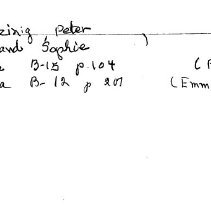 zinig Peter
and Sophie
B-15 p. 104 (
a B-12 p 201 (Emm